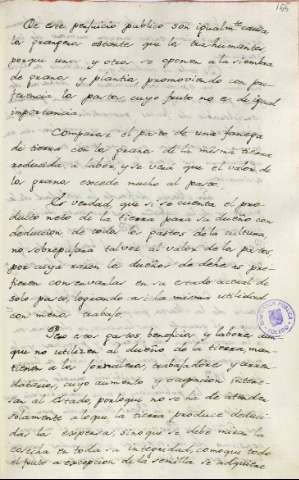 166
De este perjuicio publico son igualmte. causa
la grangeria estante que la trashumante
porque una y otra se oponen a la siembra
de granos y plantia promoviendo con pre-
ferencia los pastos, cuyo fruto no es de igual
importancia.
Comparese el pasto de una fanega
de tierra con los granos de la misma tierra
reducida a labor, y se verá que el valor de
los granos excede mucho al pasto.
Es verdad que si se cuenta el pro-
ducto neto de la tierra para su dueño con
deduccion de todos los gastos de la cultura
no sobrepujará tal vez al valor de los pastos,
por cuya razon los dueños de dehesas pre-
fieren conservarlas en su estado actual de
solo pasto, logrando asi la misma utilidad
con menos trabajo.
Pero esos gastos, beneficios y labores aun-
que no utilizen al dueño de la tierra, man-
tienen a los jornaleros, trabajadores y arren-
datarios, cuyo aumento y ocupacion intere-
san al Estado, por lo que no se ha de atender
solamente a lo que la tierra produce deduci-
das las expensas, sino que se debe mirar la
cosecha en toda su integridad, como que todo
el fruto a excepcion de la semilla se